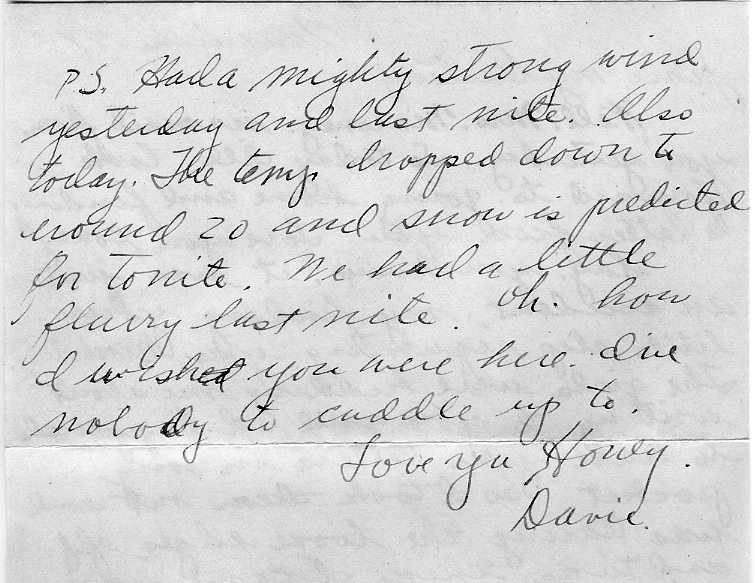 P.S. Had a mighty strong wind
yesterday and last nite. Also
today. The temp. dropped down to
around 20 and snow is predicted
for tonite. We had a little
flurry last nite. Oh. how
I wished you were here. I've
nobody to cuddle up to.
Love you Honey.
Davie.